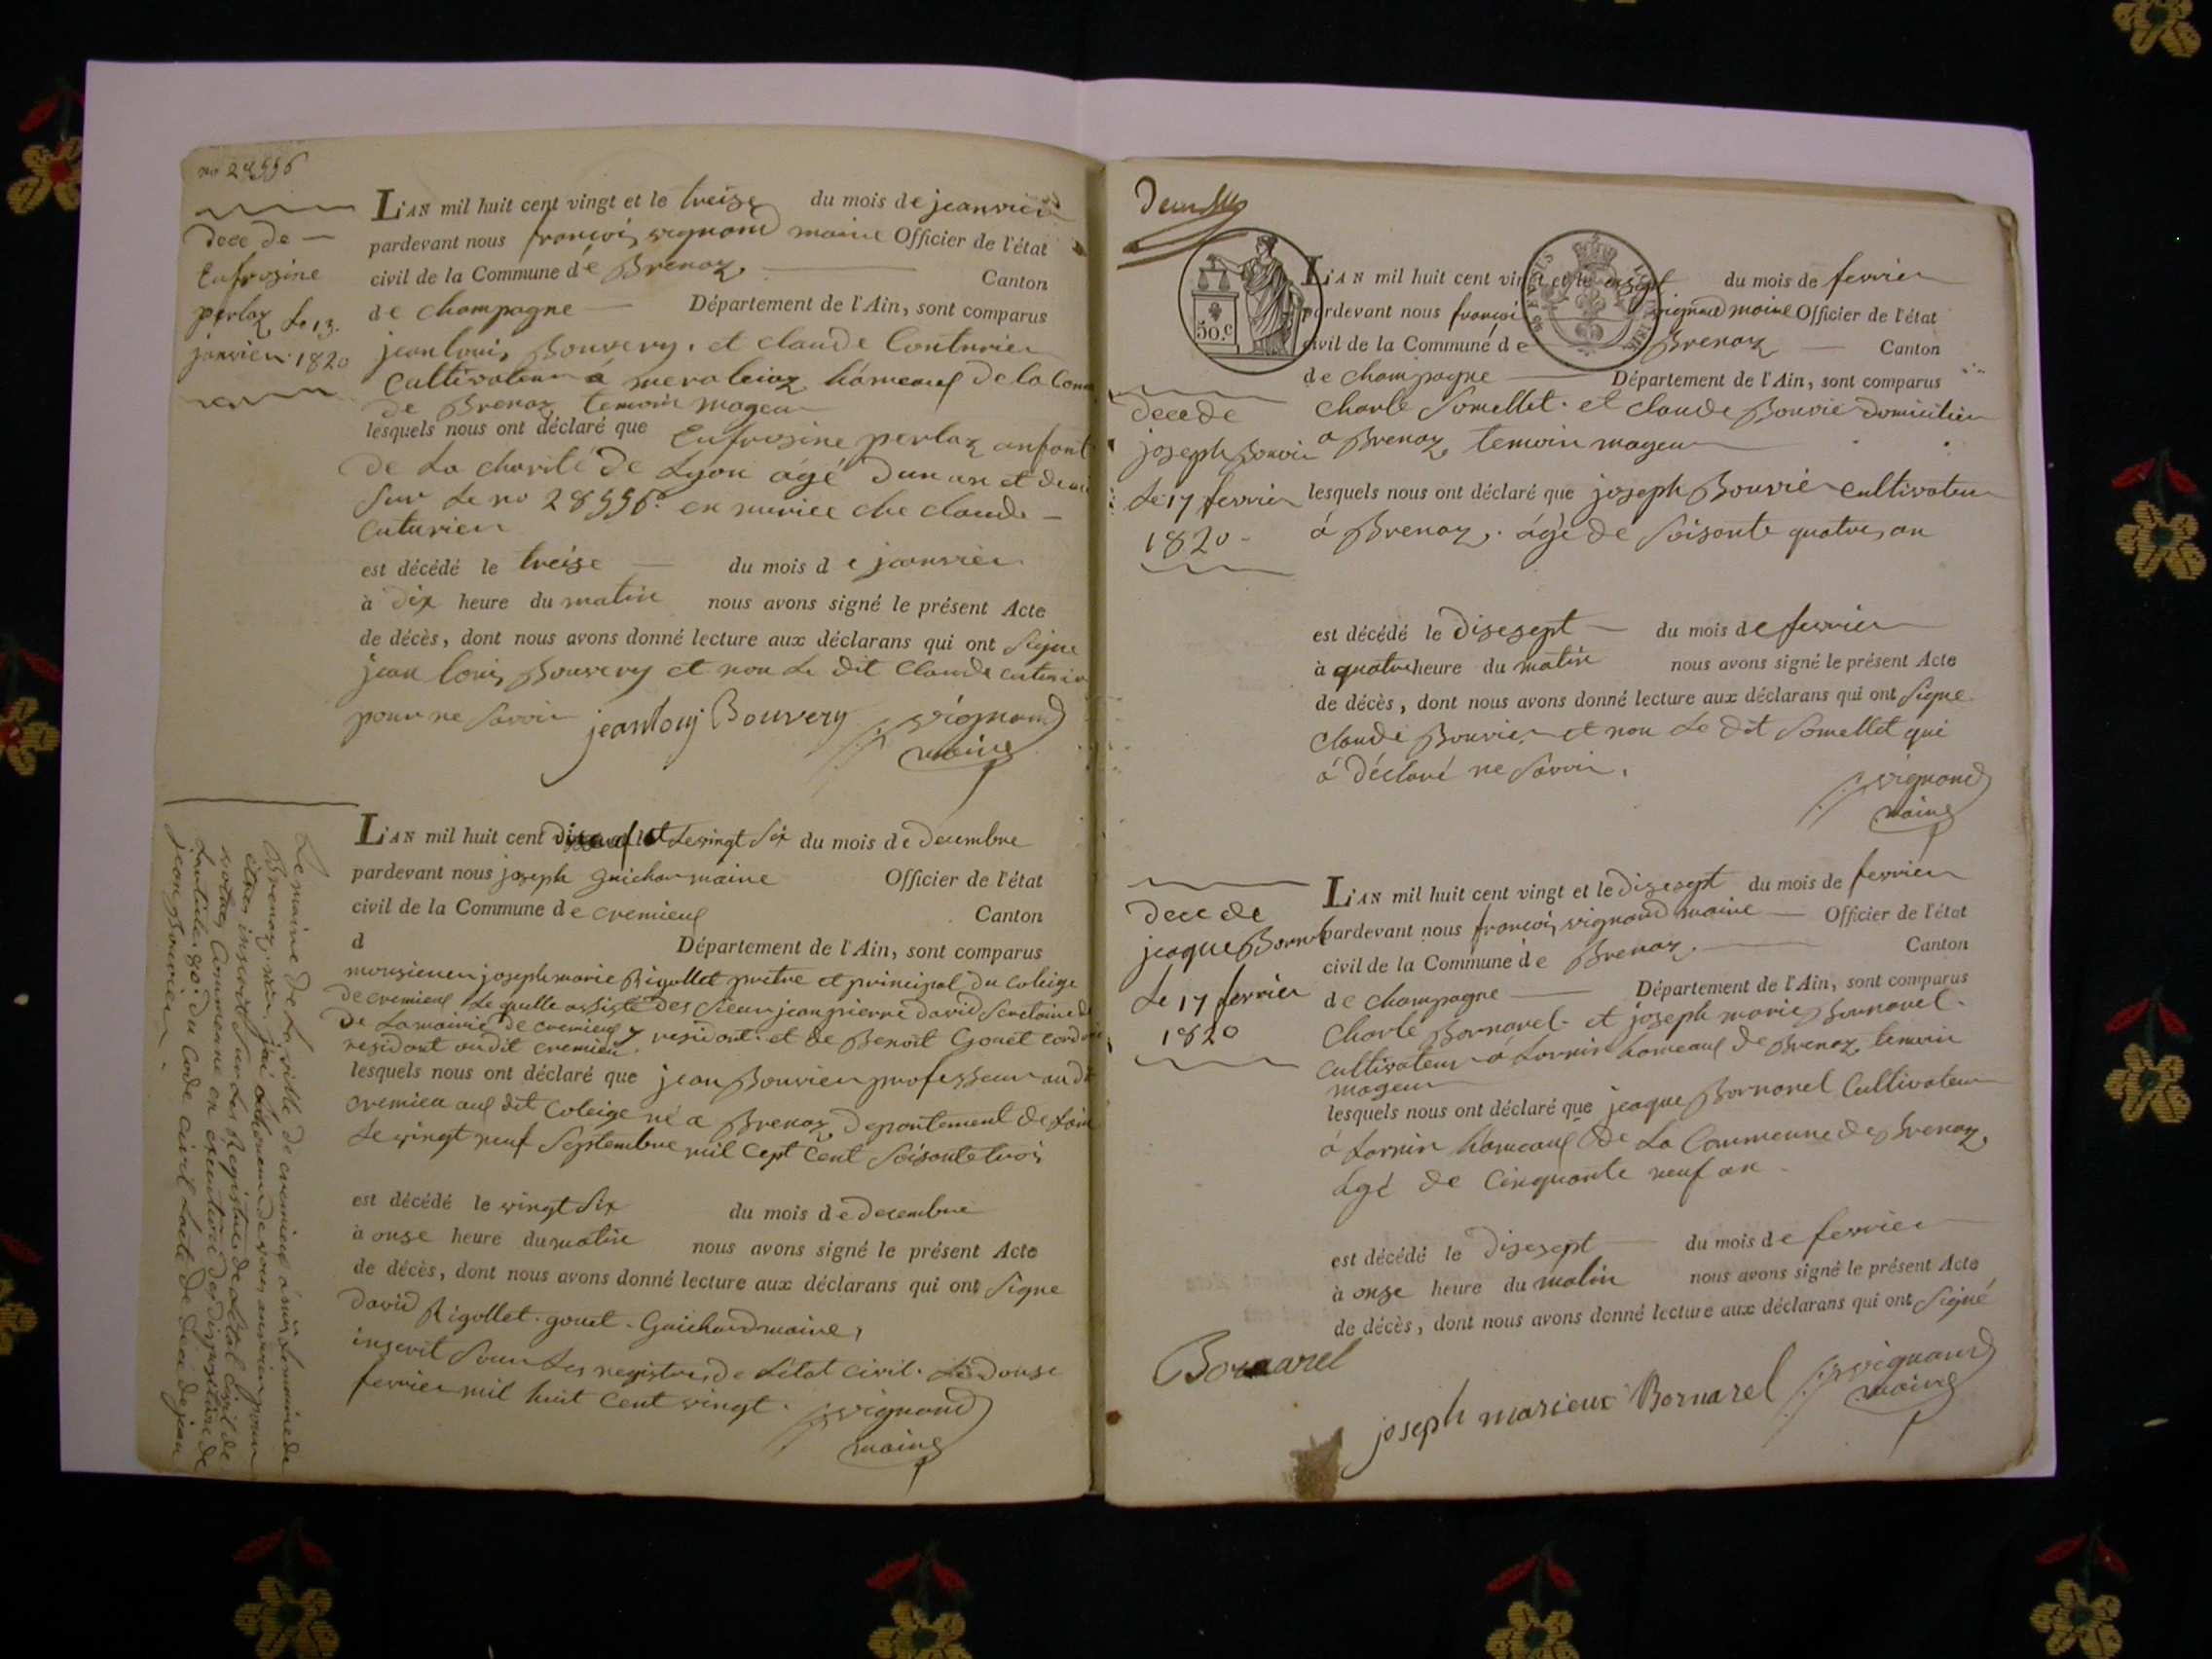 no 28556
dece de
Eufrosine
perlaz Le 13
janvier 1820
L'AN mil huit cent vingt et le treise du mois de jeanvier
pardevant nous françois vignand maire Officier de l'état
civil de la Commune de Brenaz Canton
de champagne Département de l'Ain, sont comparus
jean louis Bouvery. et claude Couturier
Cultivateur a meraleiaz hámeaux De la Com
de Brenaz temoin mageur
lesquels nous ont déclaré que Eufrosine perlaz anfant
De La charité De Lyon agé Dun an et demi
Sur Le no 28556 en nurice che claude
Cuturier
est décédé le treise du mois de jeanvier
à Dix heure du matin nous avons signé le présent Acte
de décès, dont nous avons donné lecture aux déclarans qui ont Signe
jean louis Bouvery et non Le dit Claude cuturier
pour ne Savoir jean louij Bouvery vignand
maire
L'AN mil huit cent Le vingt Six du mois de Decembre
pardevant nous joseph guichar maire Officier de l'état
civil de la Commune de cremieux Canton
d Département de l'Ain, sont comparus
monsieur joseph marie Rigollet pretre et principal Du coleige
De cremieux Le quelle assisté Des Sieur jean pierre David Secretaire de
De La mairie De cremieux y resident. et De Benoit Gonet
resident audit cremieu.
lesquels nous ont déclaré que jean Bouvier professeur au dit
cremieu aux dit Coleige né a Brenaz Departement de Lain
Le vingt neuf Septembre mil Cept Cent Soisante trois
est décédé le vingt Six du mois de Decembre
à onse heure du matin nous avons signé le présent Acte
de décès, dont nous avons donné lecture aux déclarans qui ont Signe
David Rigollet. gonet. Guichard maire,
inscrit Sur Les registre De Létat Civil. Le Douse
fevrier mil huit Cent vingt. vignand
maire
Le maire De La ville De cremieux á mr Le maire de
Brenaz
être inscrit Sur Les Registre de Létat Civil de
votre Commune en éxécution Des Disposition de
Larticle 80. Du Code Civil Lacte De Deces De jean
jean Bouvier
Deux
50.c
L'AN mil huit cent vingt et le du mois de fevrier
pardevant nous françoi vignand maire Officier de l'état
civil de la Commune de Brenaz Canton
de champagne Département de l'Ain, sont comparus
dece de
joseph Bouvier
Le 17 fevrier
1820
Charle Somellet. et claude Bouvié Domicilier
a Brenaz temoin mageur
lesquels nous ont déclaré que joseph Bouvier cultivateur
á Brenaz. ágé De Soisante quatre an
est décédé le Disesept du mois de fevrier
à quatre heure du matin nous avons signé le présent Acte
de décès, dont nous avons donné lecture aux déclarans qui ont Signe
Claude Bouvier et non Le Dit Somellet qui
á Déclaré ne Savoir. vignand
maire
L'AN mil huit cent vingt et le Disesept du mois de fevrier
pardevant nous françois vignand maire Officier de l'état
civil de la Commune de Brenaz. Canton
de champagne Département de l'Ain, sont comparus
Dece de
jeaque Bornarel
Le 17 fevrier
1820
Charle Bornarel. et joseph marie Bornarel.
Cultivateur á Lornin hameaux De Brenaz temoin
mageur
lesquels nous ont déclaré que jeaque Bornarel Cultivateur
á Lornin hameaux De La Commeune de Brenaz
agé De Cinquante neuf an
est décédé le Disesept du mois de fevrier
à onse heure du matin nous avons signé le présent Acte
de décès, dont nous avons donné lecture aux déclarans qui ont Signé
Bornarel
joseph marieux Bornarel vignand
maire